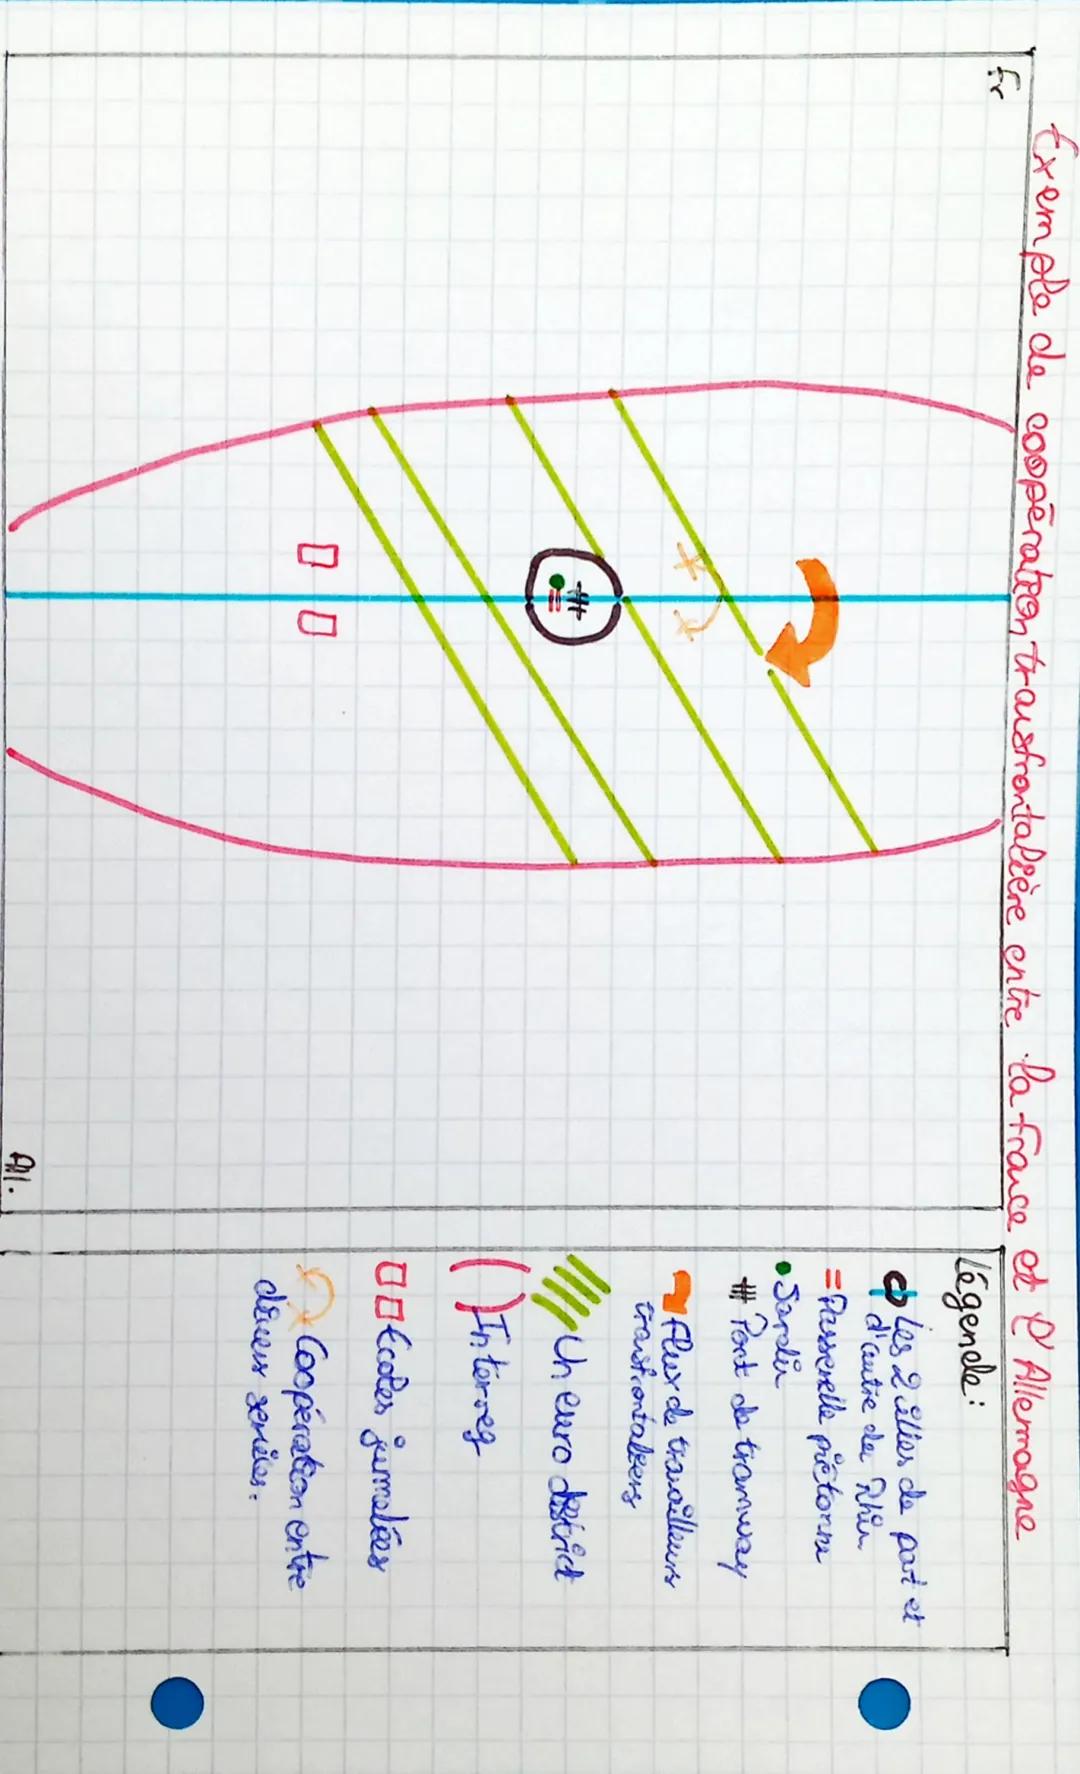 Exemple de coopération transfrontalière entre la France et l'Allemagne
Fr
All.
Légende:
Les 2 villes de part et
d'autre du Rhin
Passerelle piétonne
Jardin
Pont de tramway
Flux de travailleurs
transfrontaliers
Un euro district
Interreg
Écoles jumelées
Coopération entre
divers